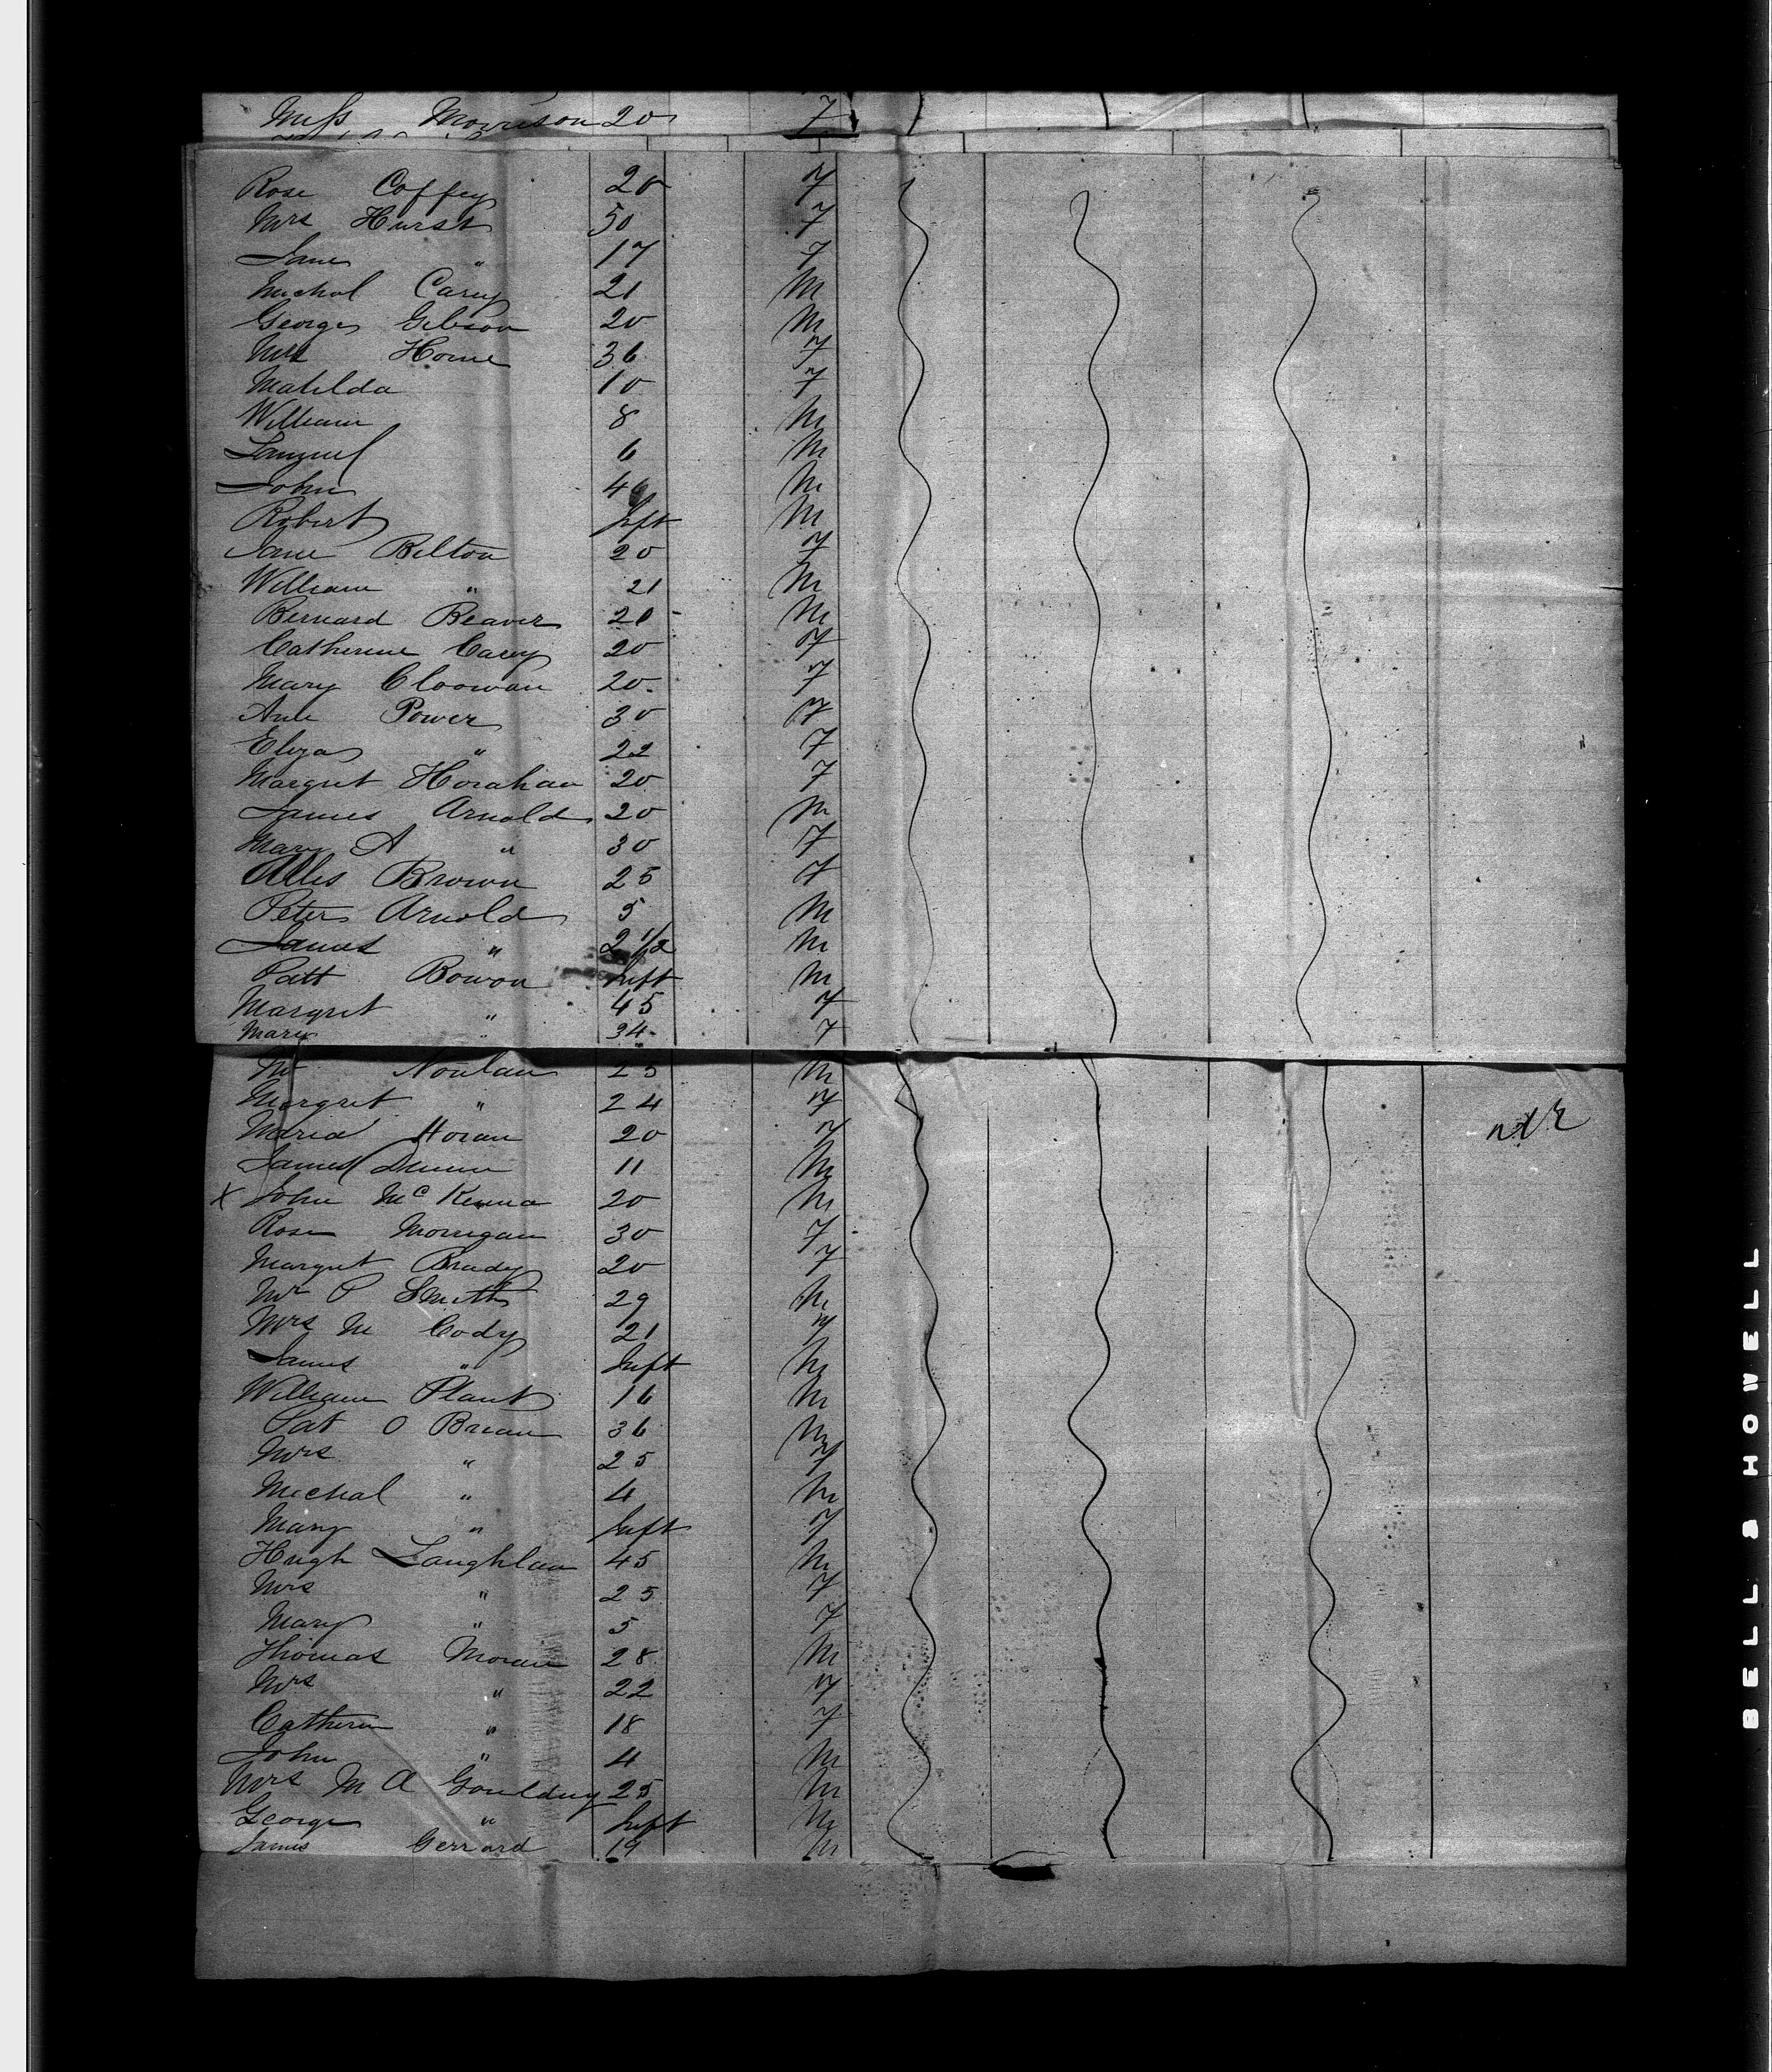 Miss Morrison 20 F
Rose Coffey 20 F
Mrs Hurst 50 F
Jane " 17 F
Michal Carey 21 M
George Gibson 20 M
Mrs Horne 36 F
Matilda 10 F
William 8 M
Samuel 6 M
John 4 M
Robert Inft M
Jane Bilton 20 F
William " 21 M
Bernard Beaver 20 M
Catherine Carey 20 F
Mary Cloowan 20 F
Ane Power 30 F
Eliza " 22 F
Margret Horahan 20 F
James Arnold 20 M
Mary A " 30 F
Alles Brown 25 F
Peter Arnold 5 M
James " 2 1/2 M
Patt Bowon Inft M
Margret " 45 F
Mary " 34 F
Mr Noulan 25 M
Margret " 24 F
Maria Horan 20 F
James Dunn 11 M
X John McKenna 20 M
Rose Morrigan 30 F
Margret Brady 20 F
Mr P Smith 29 M
Mrs M Cody 21 F
James " Inft M
William Plant 16 M
Pat O Brian 36 M
Mrs " 25 F
Michal " 4 M
Mary " Inft F
Hugh Laughlan 45 M
Mrs " 25 F
Mary " 5 F
Thomas Moran 28 M
Mrs " 22 F
Catherin " 18 F
John " 4 M
Mrs M A Goulding 25 M
George " Inft M
James Gerrard 19 M
BELL & HOWELL